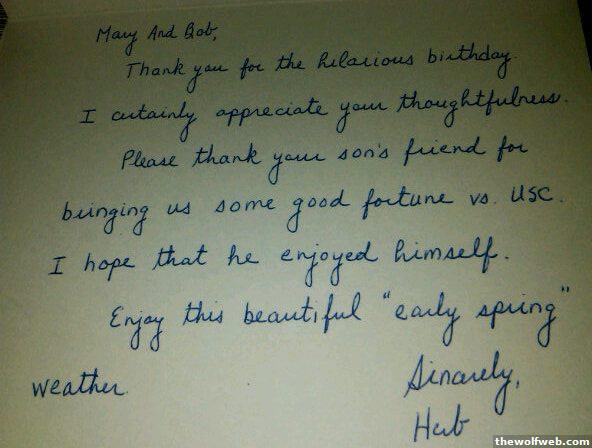 Mary And Bob,
Thank you for the hilarious birthday.
I certainly appreciate your thoughtfulness.
Please thank your son's friend for
bringing us some good fortune vs. USC.
I hope that he enjoyed himself.
Enjoy this beautiful "early spring"
weather.
Sincerely,
Herb
thewolfweb.com